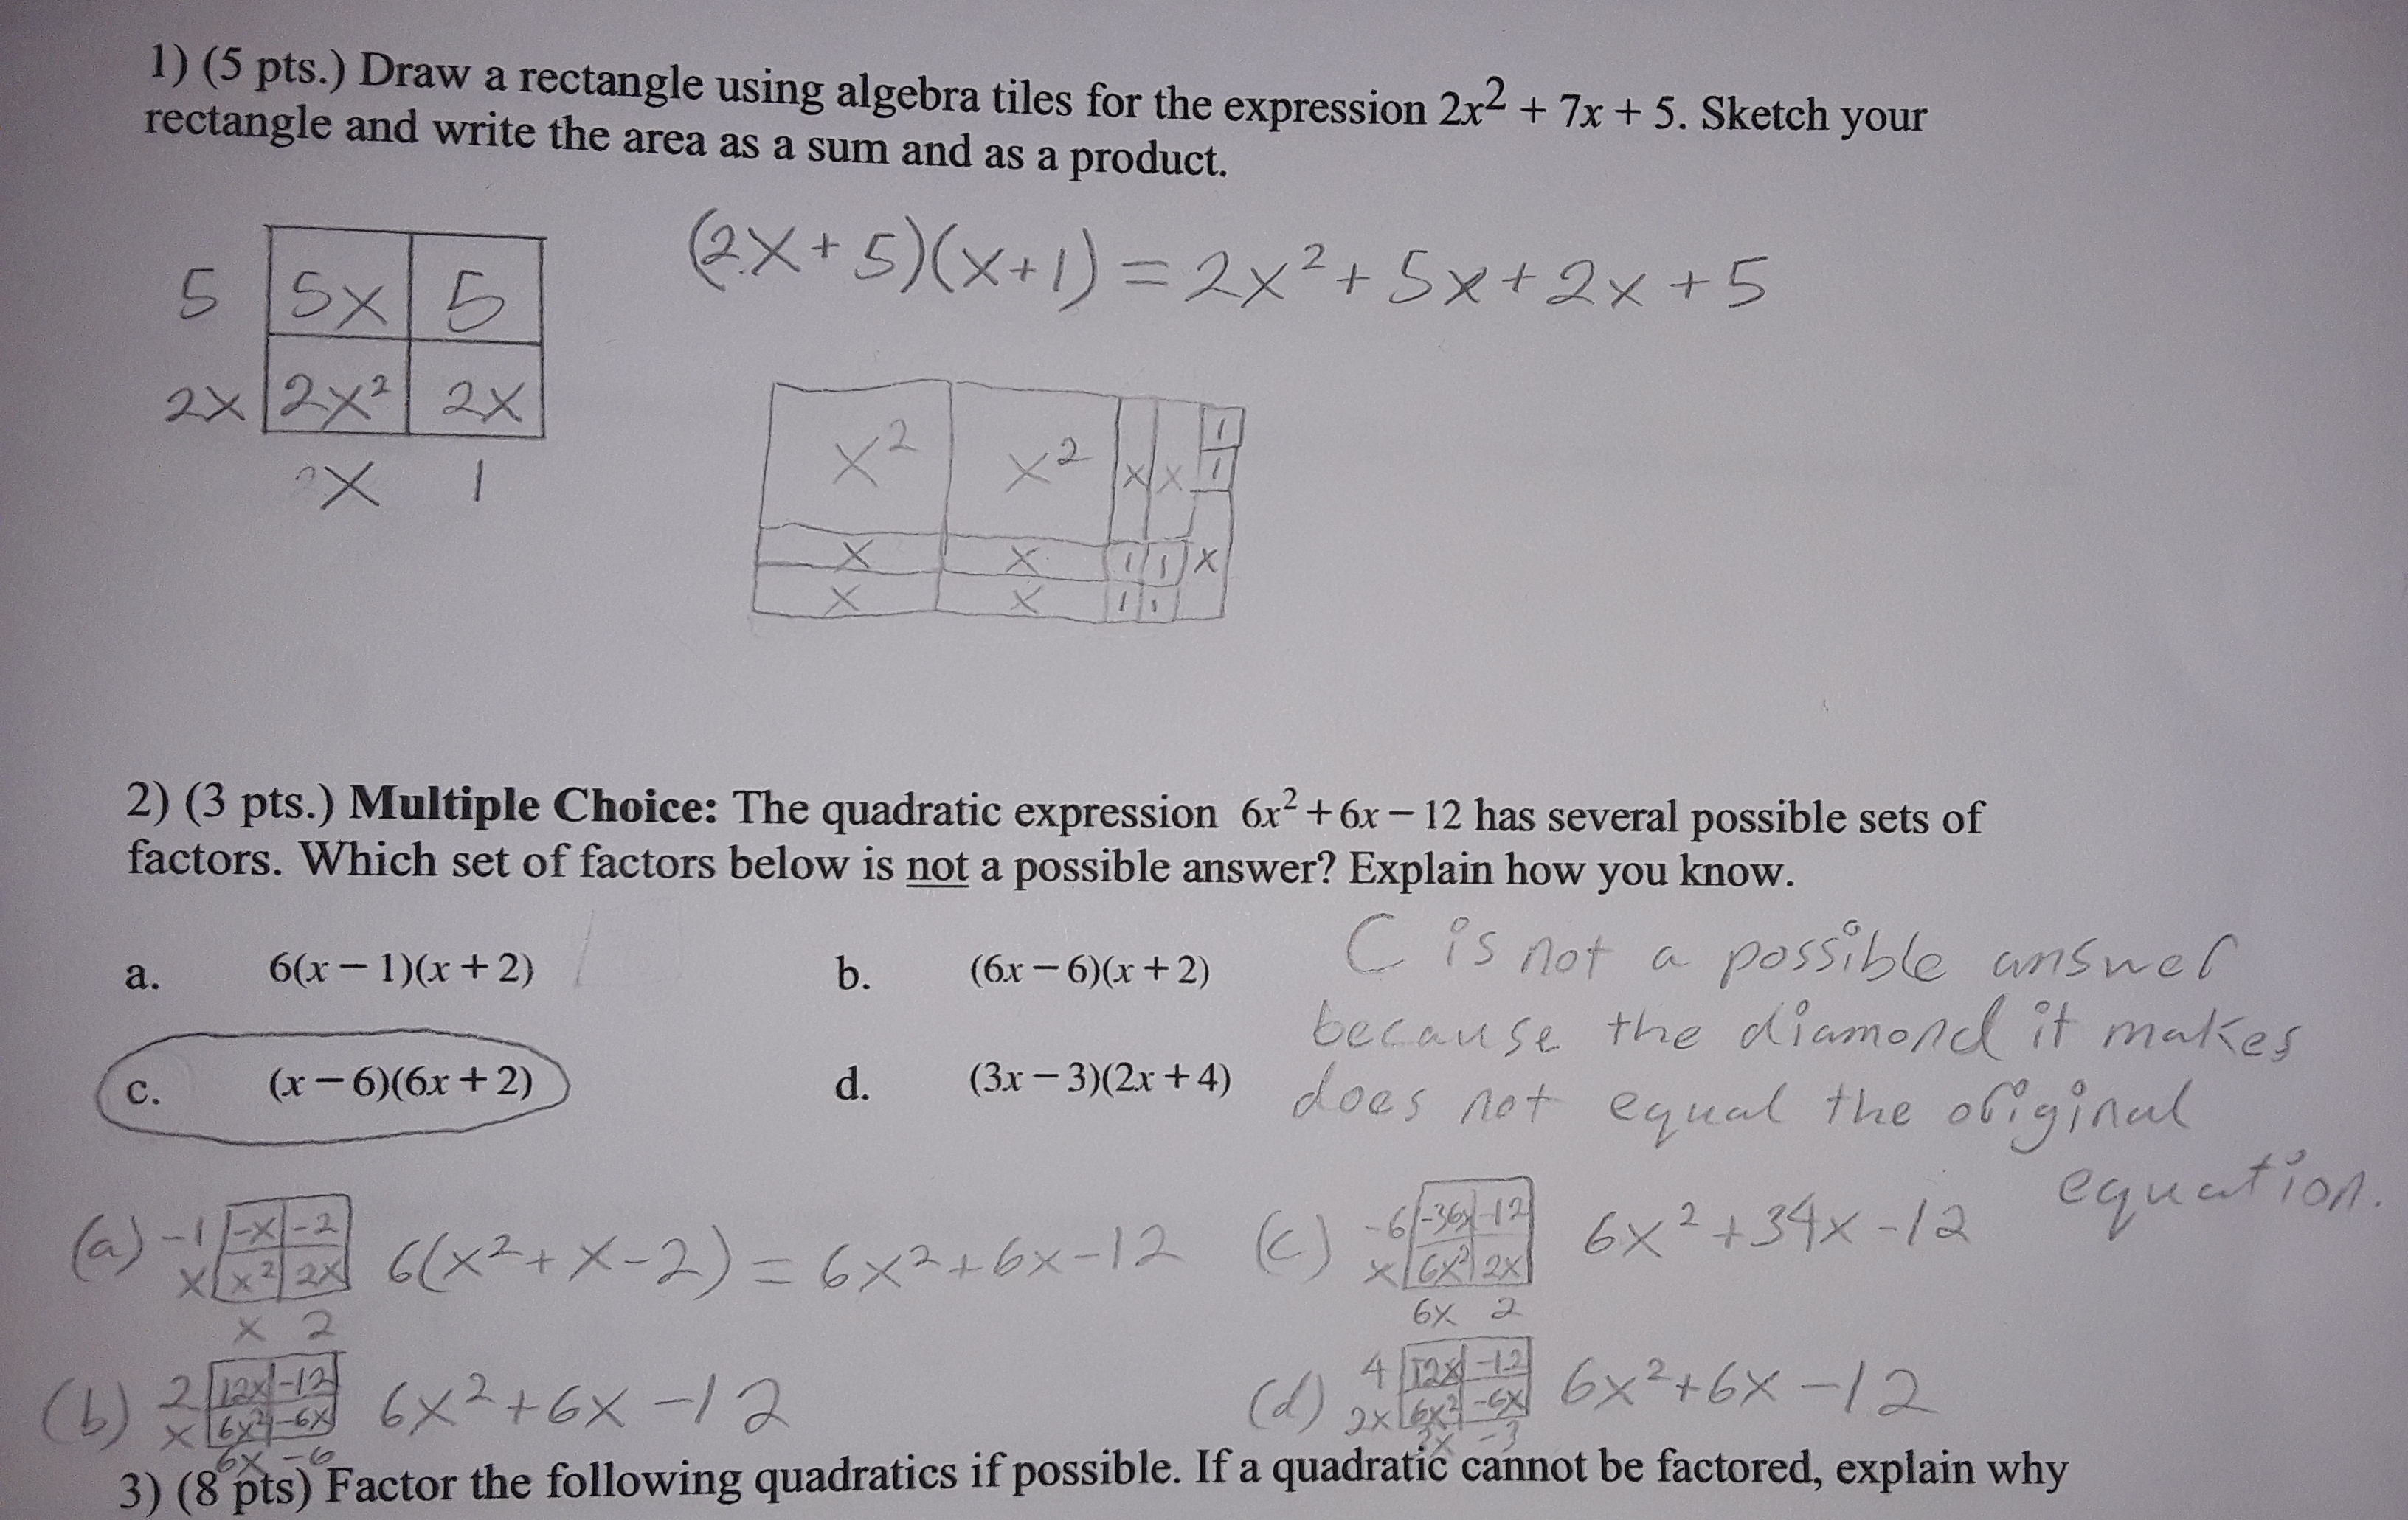 1) (5 pts.) Draw a rectangle using algebra tiles for the expression 2x² + 7x + 5. Sketch your
rectangle and write the area as a sum and as a product.
(2x+5)(x+1) = 2x² + 5x + 2x + 5
5 5x 5
2x 2x² 2x
x 1
x² x² x x 1
1
x x 1 1 x
x x 1 1
2) (3 pts.) Multiple Choice: The quadratic expression 6x² + 6x − 12 has several possible sets of
factors. Which set of factors below is not a possible answer? Explain how you know.
a. 6(x − 1)(x + 2)
b. (6x − 6)(x + 2)
c. (x − 6)(6x + 2)
d. (3x − 3)(2x + 4)
C is not a possible answer
because the diamond it makes
does not equal the original
equation.
(a) -1 -x -2
x x² 2x
x 2
6(x²+x-2) = 6x²+6x-12
(c) -6 -36x -12
x 6x² 2x
6x 2
6x²+34x-12
(b) 2 12x -12
x 6x² -6x
6x -6
6x²+6x-12
(d) 4 12x -12
2x 6x² -6x
3x -3
6x²+6x-12
3) (8 pts) Factor the following quadratics if possible. If a quadratic cannot be factored, explain why